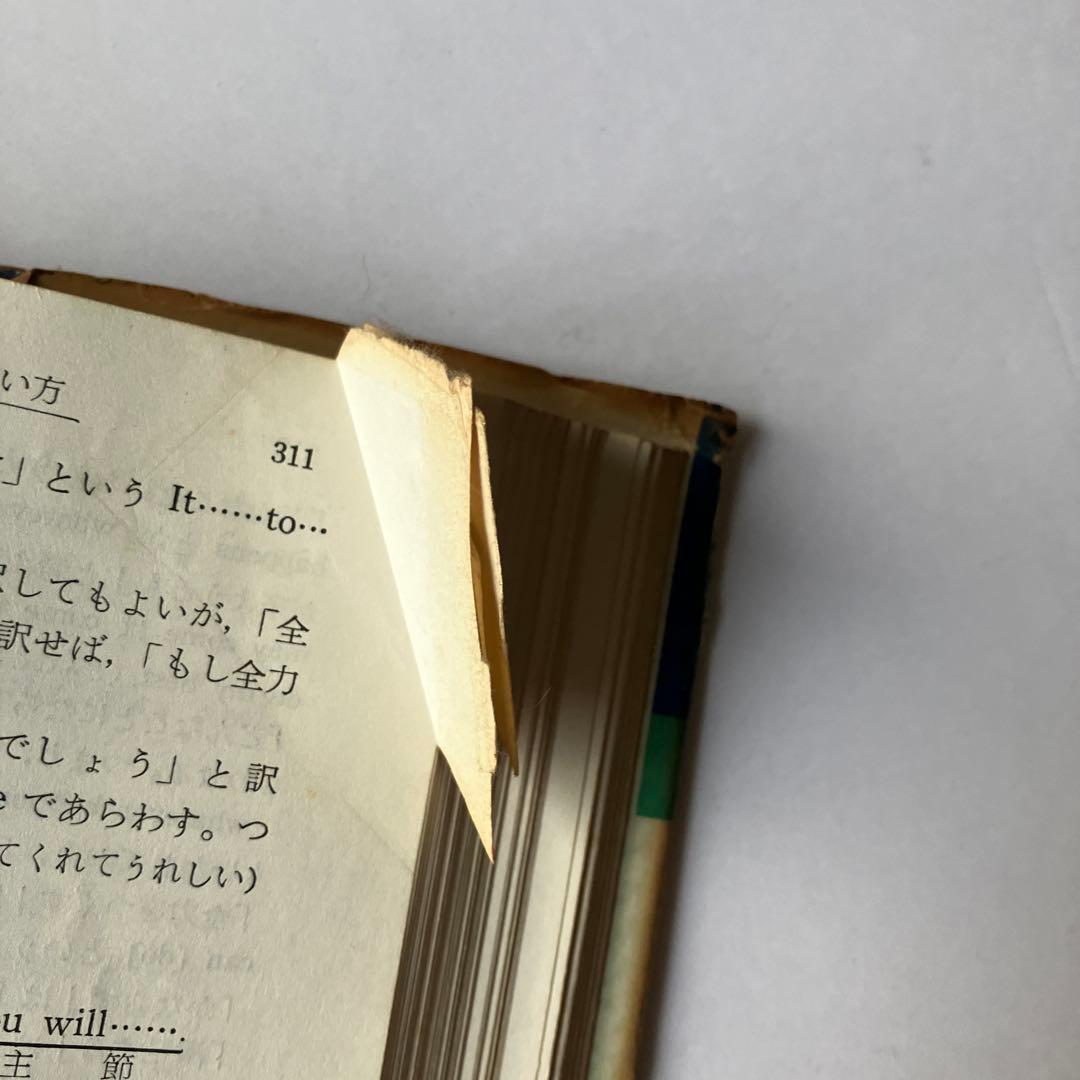 い方
311
」という It……to…
してもよいが,「全
訳せば,「もし全力
でしょう」と訳
e であらわす。つ
てくれてうれしい)
u will…….
主 節